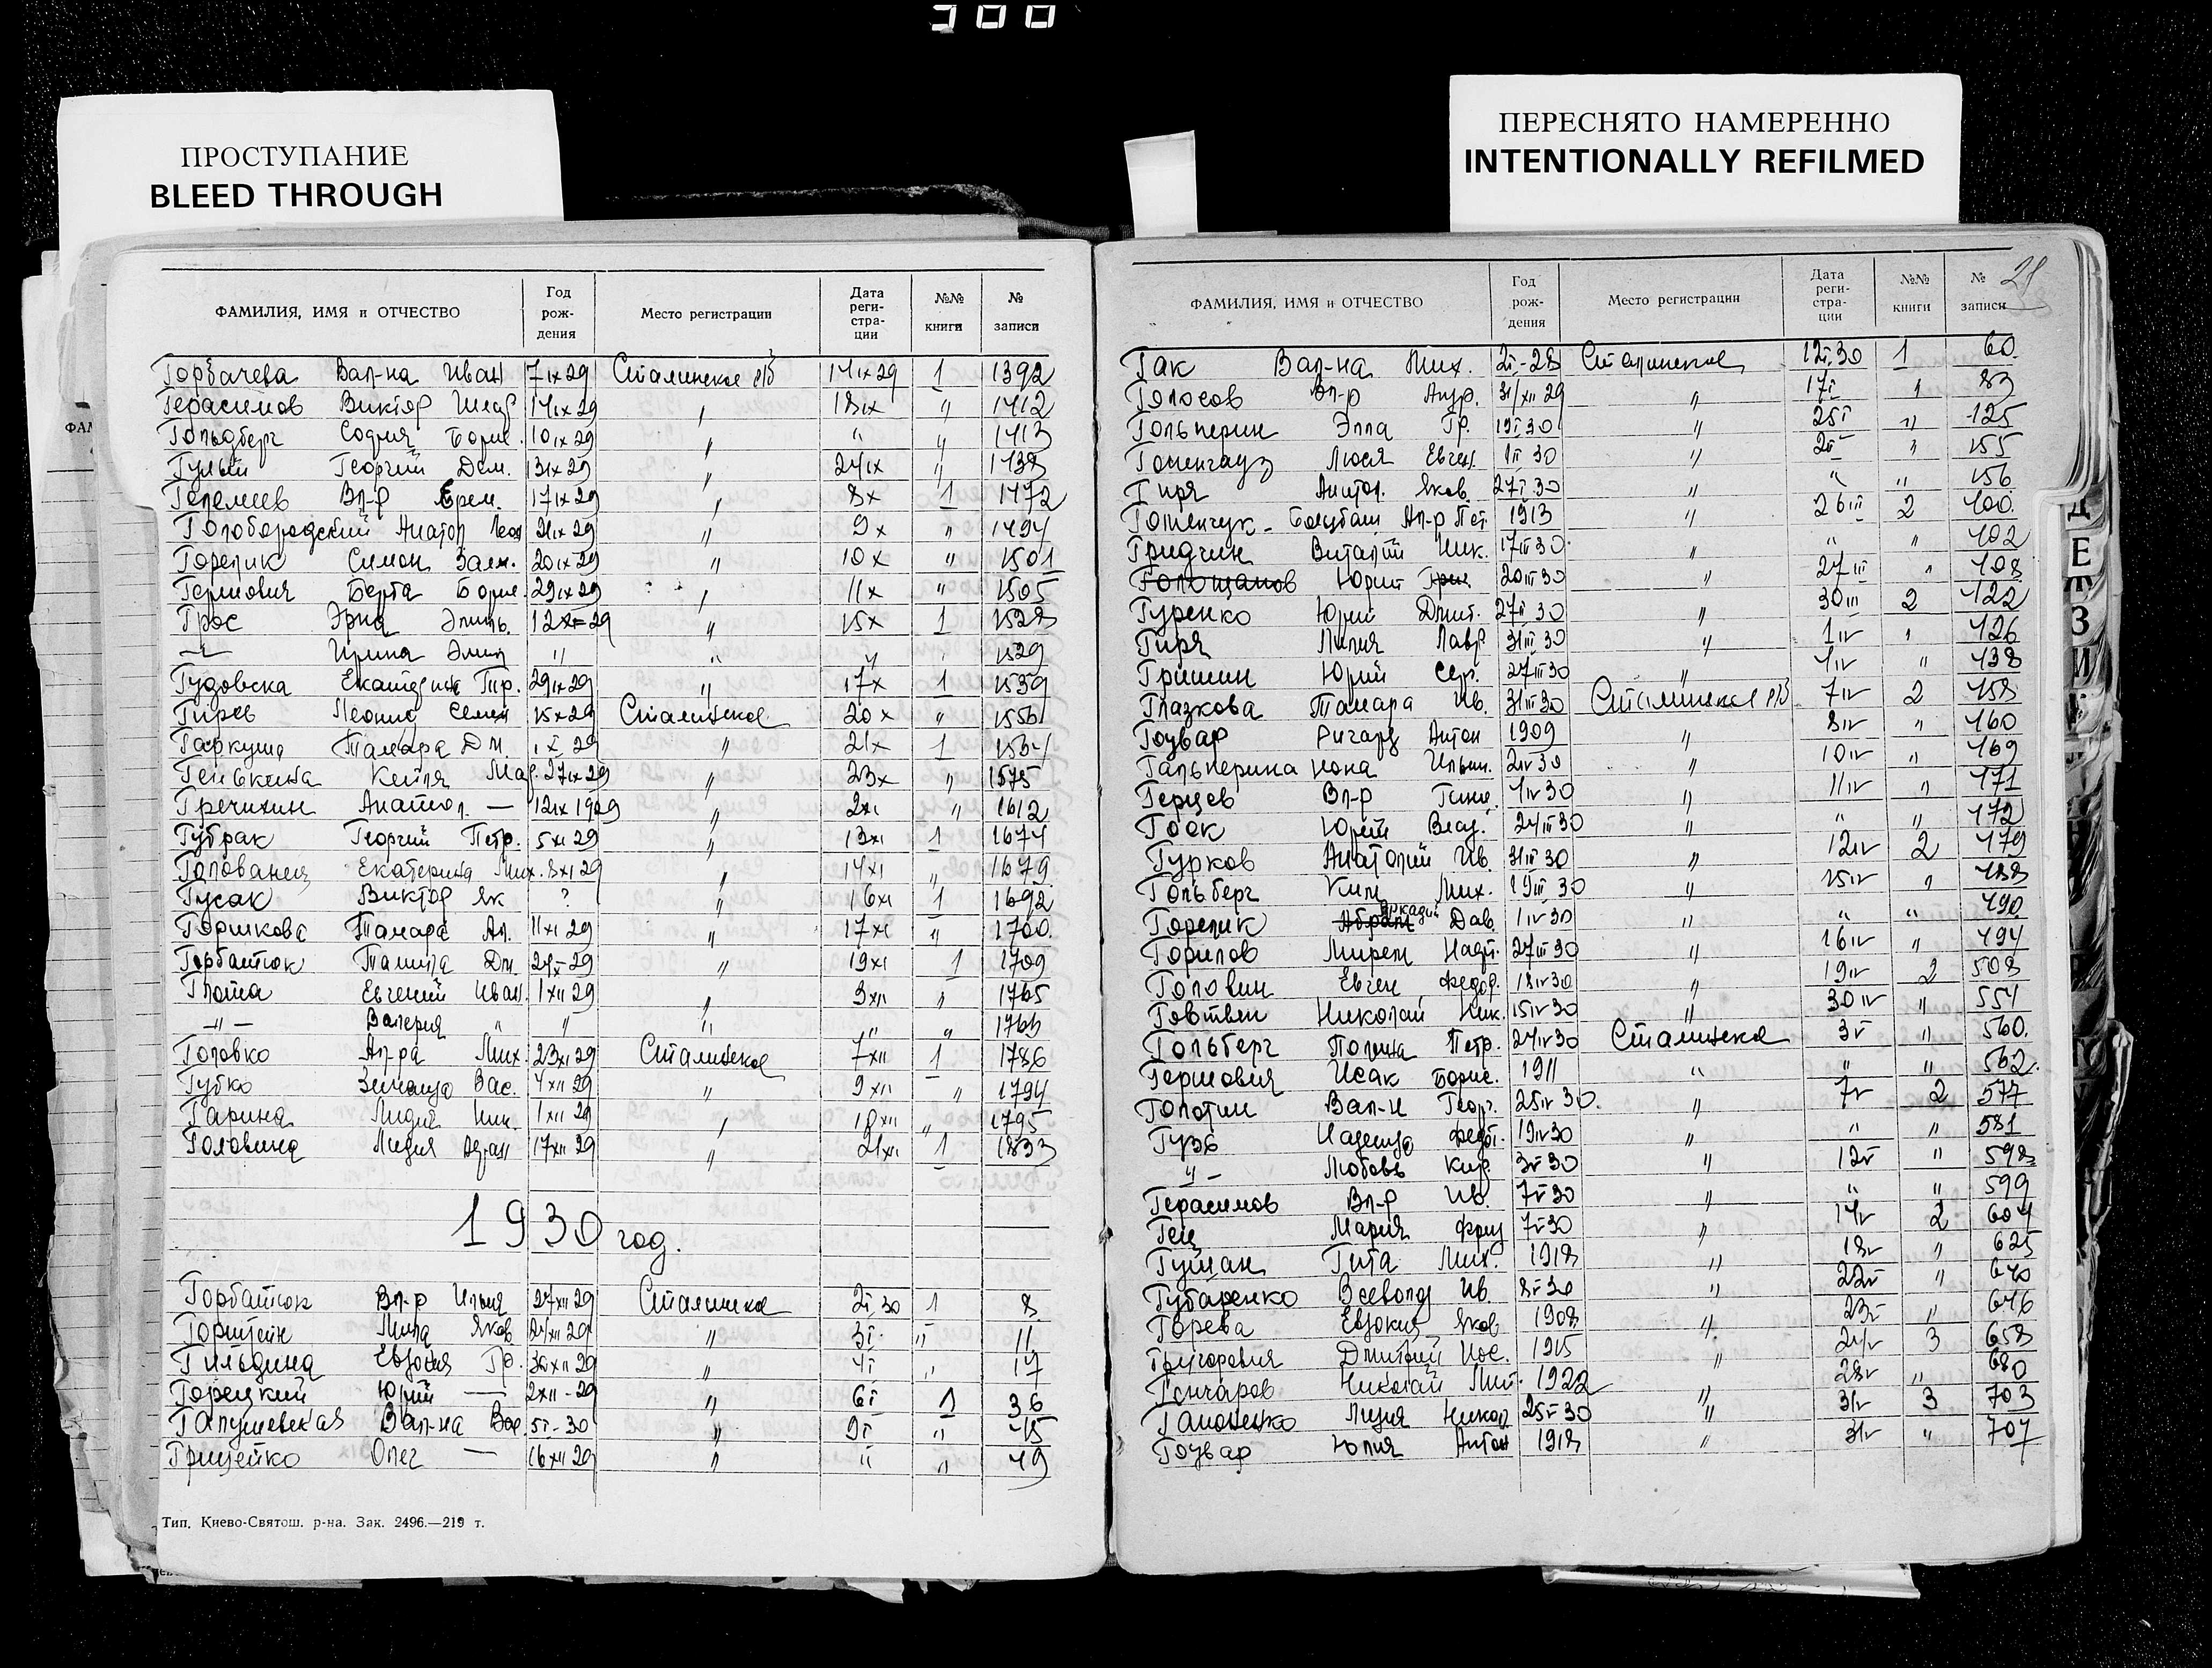 ПРОСТУПАНИЕ
BLEED THROUGH
ПЕРЕСНЯТО НАМЕРЕННО
INTENTIONALLY REFILMED
ФАМИЛИЯ, ИМЯ и ОТЧЕСТВО Год рождения Место регистрации Дата регистрации №№ книги № записи
Горбачева Вал-на Иван 7 IX 29 Сталинское 14 IX 29 1 1392
Герасимов Виктор 14 IX 29 " 18 IX " 1412
Гольдберг София Борис. 10 IX 29 " " " 1413
Гулый Георгий Дем. 13 IX 29 " 24 IX " 1438
Вл-р Ерем. 17 IX 29 " 8 X 1 1472
Голобородский Анатол 21 IX 29 " 9 X " 1494
Горелик Симон Залм. 20 IX 29 " 10 X " 1501
Гершович Берта Борис. 29 IX 29 " 11 X " 1505
Грос Эрна Эмиль. 29 " 15 X 1 1528
—"— Ирина Эмил " " " " 1529
Гудовска Екатерина 29 IX 29 " 17 X 1 1539
Гирев Леонид Семен 15 X 29 Сталинское 20 X " 1556
Гаркуша Тамара Дм. 29 " 21 X 1
27 IX 29 " 23 X " 1575
Гречихин Анатол. — 12 IX 1929 " 2 XI " 1612
Губрак Георгий Петр. 5 XI 29 " 13 XI 1 1674
Голованец Екатерина Мих. 8 XI 29 " 14 XI " 1679
Гусак Виктор Як ? " 16 XI 1 1692
Горшкова Тамара Ал. 11 XI 29 " 17 XI " 1700
Горбатюк Дм. 29 " 19 XI 1 1709
Глота Евгений Иван. 1 XII 29 " 3 XII " 1765
—"— Валерия " " " " " 1766
Головко Ал-ра Мих. 23 XI 29 Сталинское 7 XII 1 1786
Губко Зинаида Вас. 4 XII 29 " 9 XII " 1794
Гарина Лидия Ник. 1 XII 29 " 10 XII " 1795
Головина Лидия 17 XII 29 " 21 XII 1 1833
1930 год.
Горбатюк Вл-р Ильич 27 XII 29 Сталинское 2 I 30 1 8
Горштейн Мила Яков 24 XII 29 " 3 I " 11
Гильдина Евдокия Гр. 29 " 4 I " 17
Горецкий Юрий — 2 XII - 29 " 6 I 1 36
Галушевская Вал-на 5 I - 30 " 9 I " 45
Грищенко Олег — 16 XII 29 " " " 49
Тип. Киево-Святош. р-на. Зак. 2496.—219 т.
21
ФАМИЛИЯ, ИМЯ и ОТЧЕСТВО Год рождения Место регистрации Дата регистрации №№ книги № записи
Гак Вал-на Мих. 2 I - 28 Сталинское 12 I 30 1 60
Голосов Вл-р Андр. 31/XII 29 " 17 I 1 83
Гольперин Элла Гр. 19 I 30 " 25 I " 125
Люся Евген. 1 II 30 " 2 II " 155
Гиря Анатол. Яков. 27 I 30 " " " 156
Ал-р Пет. 1913 " 26 III 2 100
Гридчин Виталий Ник. 17 III 30 " " " 102
Голощапов Юрий 20 III 30 " 27 III " 108
Гуренко Юрий Дмит. 27 30 " 30 III 2 122
Гиря Лилия Лавр 31 III 30 " 1 IV " 126
Гришин Юрий Сер. 27 III 30 " " 138
Глазкова Тамара Ив. 31 III 30 Сталинское 7 IV 2 158
Гоувар Ричард Антон 1909 " 8 IV " 160
Гальперина Нона 2 IV 30 " 10 IV " 169
Герцев Вл-р 30 " 11 IV " 171
Гоок Юрий 24 III 30 " " " 172
Гурков Анатолий Ив. 31 III 30 " 12 IV 2 179
Гольберг Ким Мих. 19 III 30 " 15 IV " 188
Горелик Аркадий Дав. 1 IV 30 " " " 190
Горилов Мирем 27 III 30 " 16 IV " 194
Головин Евген Федор. 18 IV 30 " 19 IV 2 508
Говтвен Николай Ник. 15 IV 30 " 30 IV " 554
Гольберг Полина Петр. 24 IV 30 Сталинское 3 V " 560
Гершович Исак Борис. 1911 " " " 562
Голотин Вал-н Георг. 25 IV 30 " 7 V 2 577
Гузь Надежда Федот. 19 IV 30 " " " 581
" — Любовь Кир. 3 V 30 " 12 V " 598
Герасимов Вл-р Ив. 7 V 30 " " " 599
Гец Мария 7 V 30 " 14 V 2 604
Гутман Гита Мих. 1918 " 18 V " 625
Губаренко Всеволод Ив. 8 V 30 " 22 V " 640
Горева Евдокия Яков 1908 " 23 V " 646
Григорович Дмитрий Иос. 1915 " 24 V 3 658
Гончаров Николай 1922 28 V " 680
Гапоненко Лидия Никол 25 V 30 " 31 V 3 703
Гоувар Юлия Антон 1918 " 31 V " 707